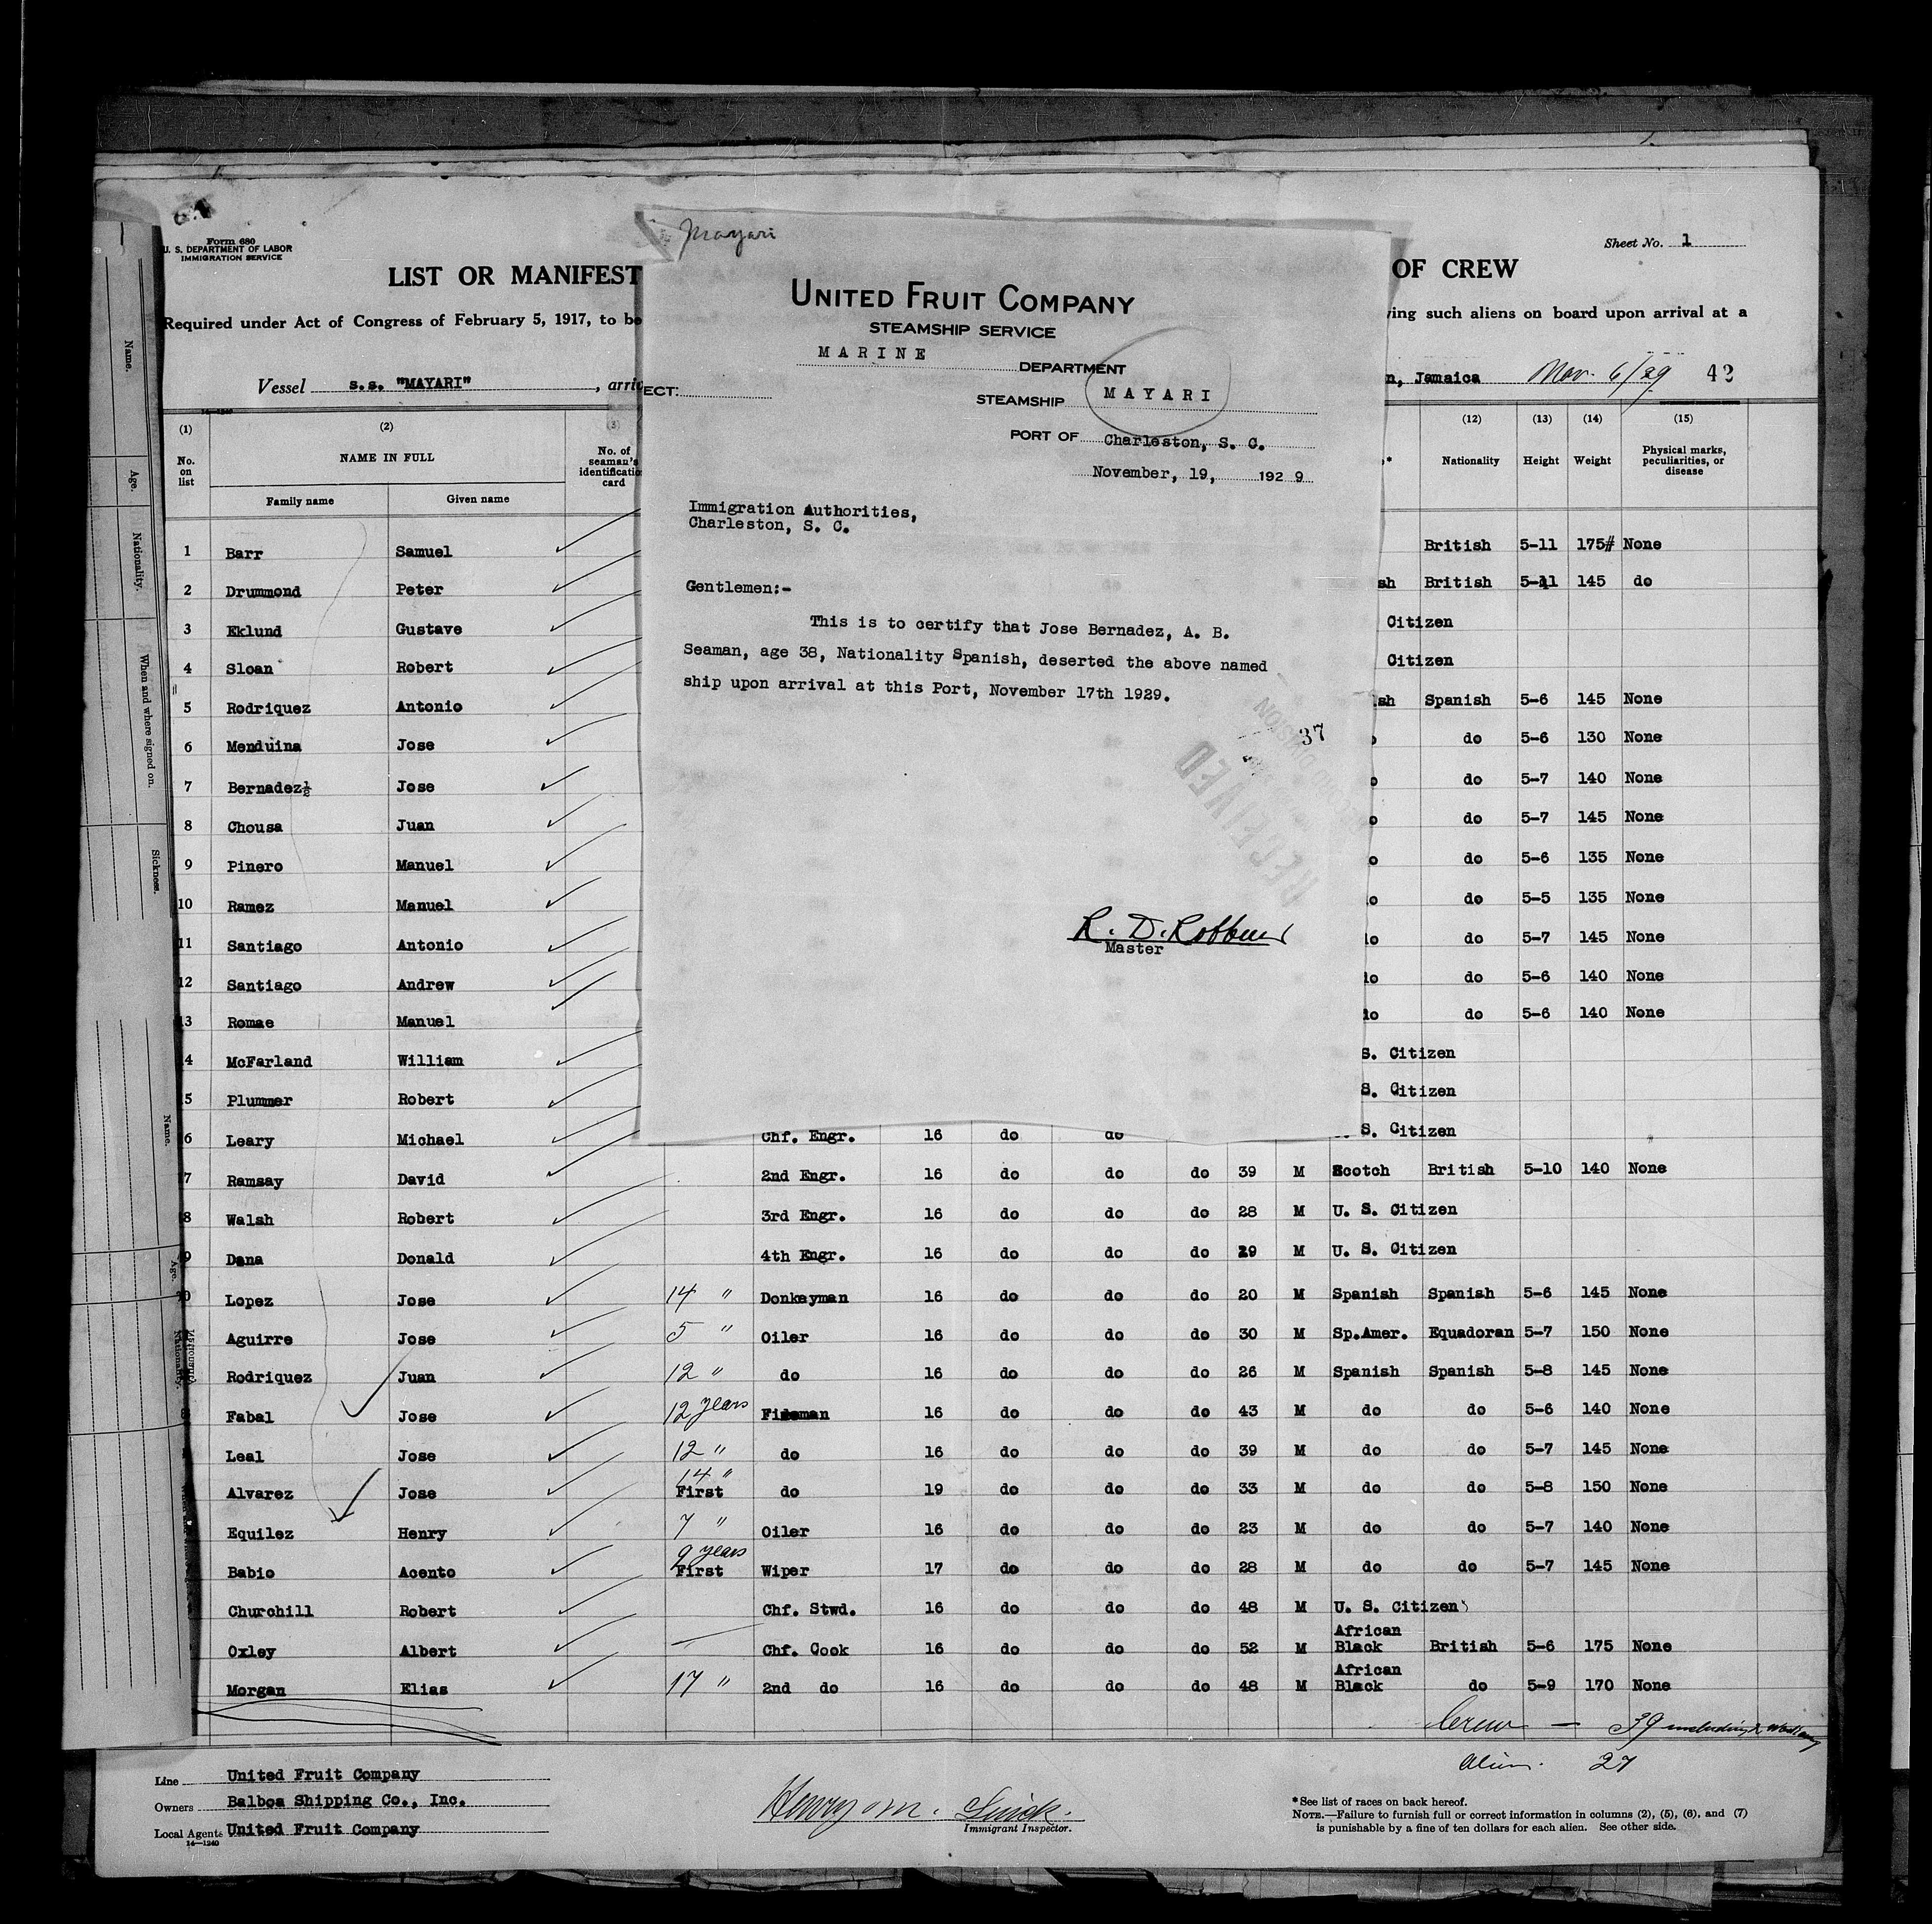 Form 680
U. S. DEPARTMENT OF LABOR
IMMIGRATION SERVICE
Sheet No. 1
LIST OR MANIFEST
OF CREW
Required under Act of Congress of February 5, 1917, to be
ving such aliens on board upon arrival at a
Vessel s.s. "MAYARI", arri
n, Jamaica Nov. 6/29 42
Mayari
UNITED FRUIT COMPANY
STEAMSHIP SERVICE
MARINE DEPARTMENT
ECT:
STEAMSHIP MAYARI
PORT OF Charleston, S. C.
November, 19, 1929
Immigration Authorities,
Charleston, S. C.
Gentlemen:-
This is to certify that Jose Bernadez, A. B.
Seaman, age 38, Nationality Spanish, deserted the above named
ship upon arrival at this Port, November 17th 1929.
37
RECEIVED
R. D. Robbins
Master
14-1240
(1) (2) (3) (12) (13) (14) (15)
No. on list
NAME IN FULL
Family name Given name
No. of seaman's identificatio card
Nationality Height Weight Physical marks, peculiarities, or disease
1 Barr Samuel British 5-11 175# None
2 Drummond Peter sh British 5-11 145 do
3 Eklund Gustave Citizen
4 Sloan Robert Citizen
5 Rodriquez Antonio sh Spanish 5-6 145 None
6 Menduina Jose o do 5-6 130 None
7 Bernadez Jose o do 5-7 140 None
8 Chousa Juan o do 5-7 145 None
9 Pinero Manuel o do 5-6 135 None
10 Ramez Manuel o do 5-5 135 None
11 Santiago Antonio do do 5-7 145 None
12 Santiago Andrew do do 5-6 140 None
13 Romae Manuel do do 5-6 140 None
4 McFarland William S. Citizen
5 Plummer Robert S. Citizen
6 Leary Michael Chf. Engr. 16 do do S. Citizen
7 Ramsay David 2nd Engr. 16 do do do 39 M Scotch British 5-10 140 None
8 Walsh Robert 3rd Engr. 16 do do do 28 M U. S. Citizen
9 Dana Donald 4th Engr. 16 do do do 29 M U. S. Citizen
Lopez Jose 14 " Donkeyman 16 do do do 20 M Spanish Spanish 5-6 145 None
Aguirre Jose 5 " Oiler 16 do do do 30 M Sp.Amer. Equadoran 5-7 150 None
Rodriquez Juan 12 " do 16 do do do 26 M Spanish Spanish 5-8 145 None
Fabal Jose 12 years Fireman 16 do do do 43 M do do 5-6 140 None
Leal Jose 12 " do 16 do do do 39 M do do 5-7 145 None
Alvarez Jose 14 " First do 19 do do do 33 M do do 5-8 150 None
Equilez Henry 7 " Oiler 16 do do do 23 M do do 5-7 140 None
Babio Acento 9 years First Wiper 17 do do do 28 M do do 5-7 145 None
Churchill Robert Chf. Stwd. 16 do do do 48 M U. S. Citizen
Oxley Albert Chf. Cook 16 do do do 52 M African Black British 5-6 175 None
Morgan Elias 17 " 2nd do 16 do do do 48 M African Black do 5-9 170 None
Crew — 39 including
Alien. 27
Line United Fruit Company
Owners Balboa Shipping Co., Inc.
Local Agents United Fruit Company
14-1240
Immigrant Inspector.
*See list of races on back hereof.
NOTE.—Failure to furnish full or correct information in columns (2), (5), (6), and (7)
is punishable by a fine of ten dollars for each alien. See other side.
Name.
Age.
Nationality.
When and where signed on.
Sickness.
Name.
Age.
Nationality.